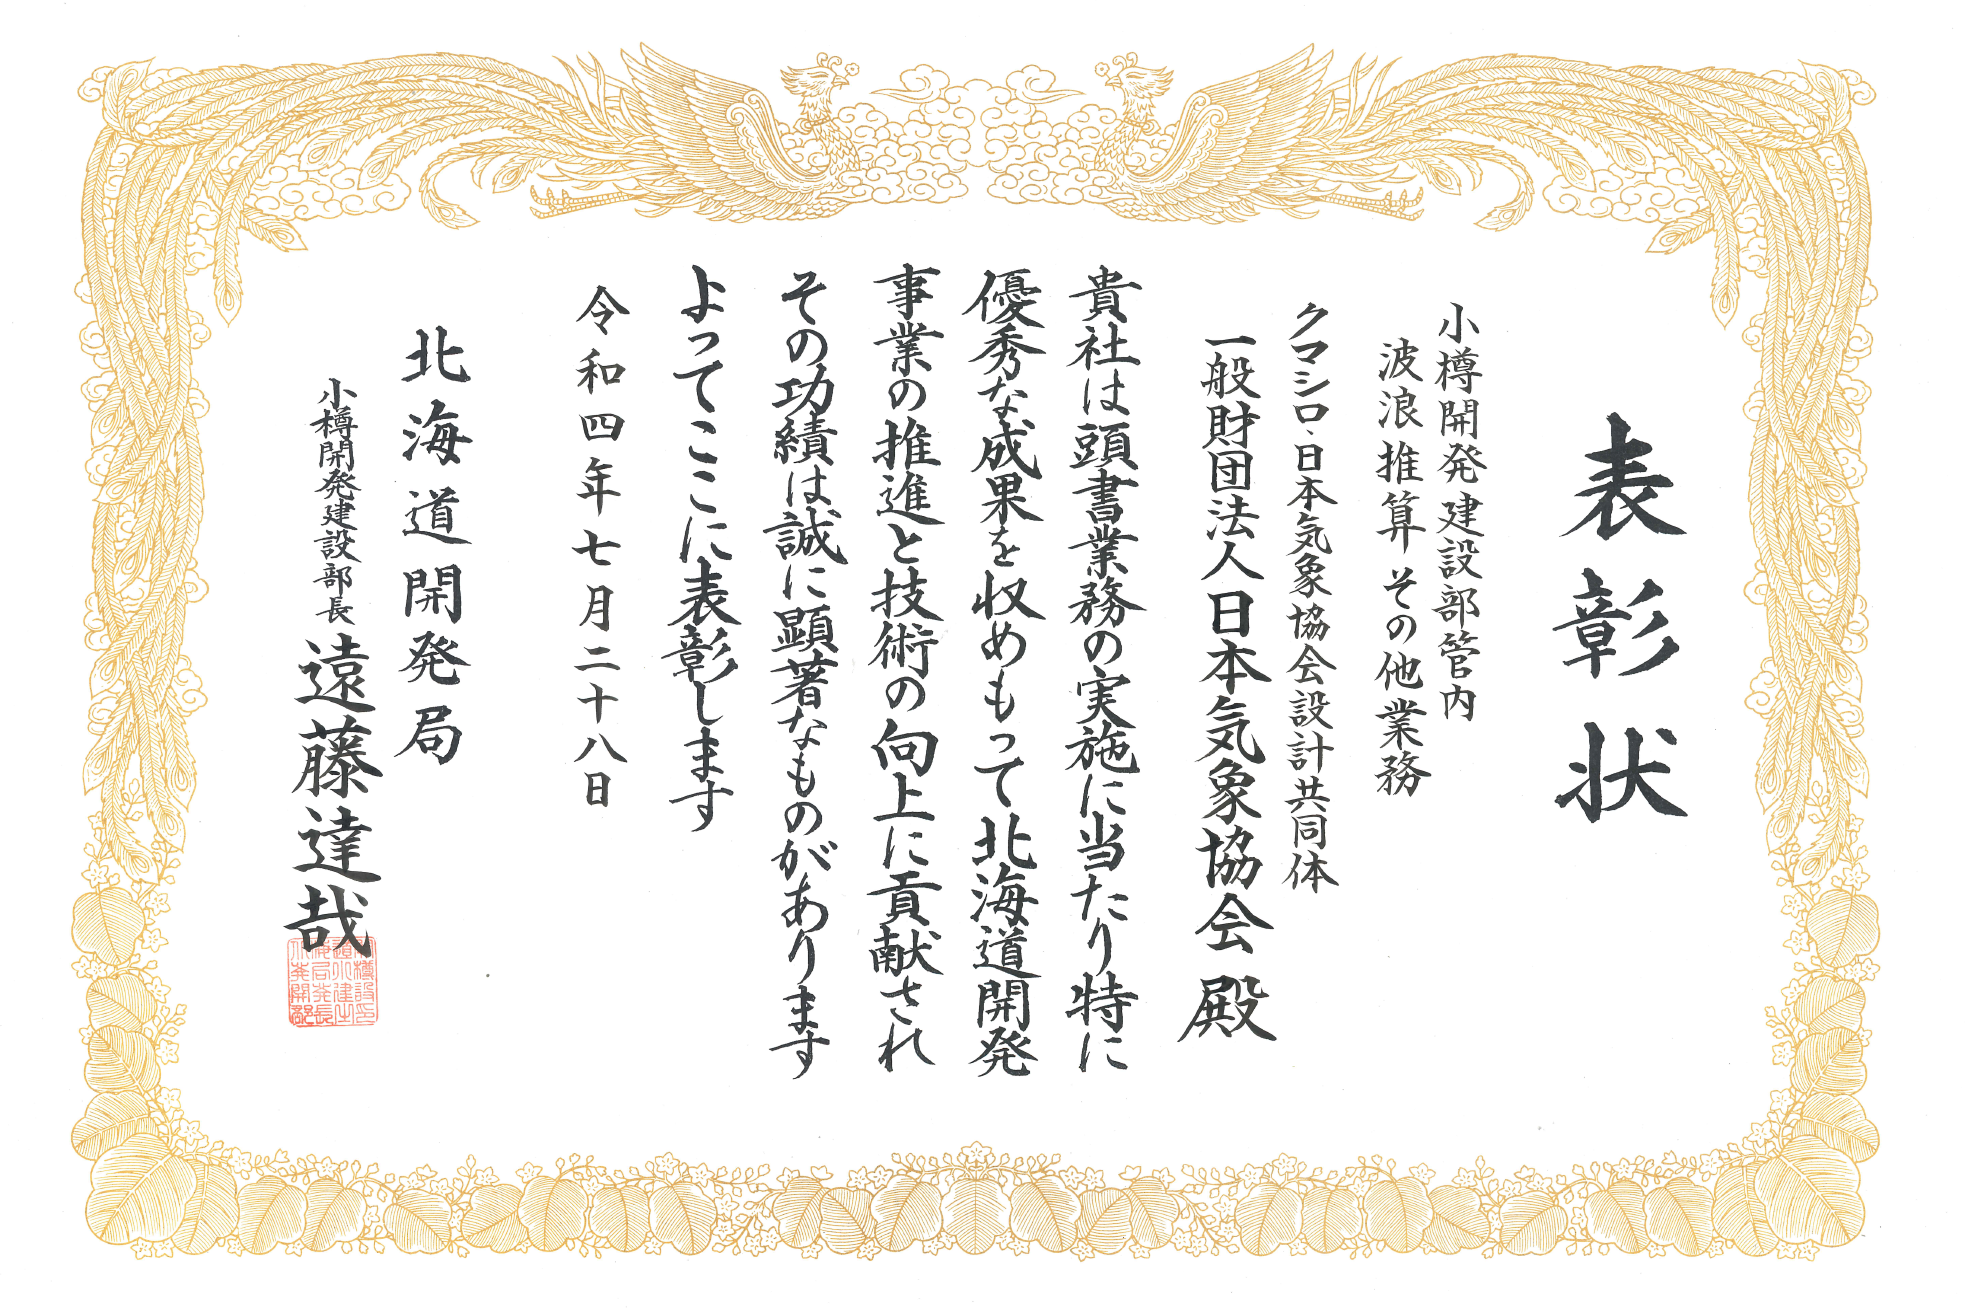 表彰状
小樽開発建設部管内
波浪推算その他業務
クマシロ・日本気象協会設計共同体
一般財団法人日本気象協会 殿
貴社は頭書業務の実施に当たり特に
優秀な成果を収めもって北海道開発
事業の推進と技術の向上に貢献され
その功績は誠に顕著なものがあります
よってここに表彰します
令和四年七月二十八日
北海道開発局
小樽開発建設部長 遠藤達哉